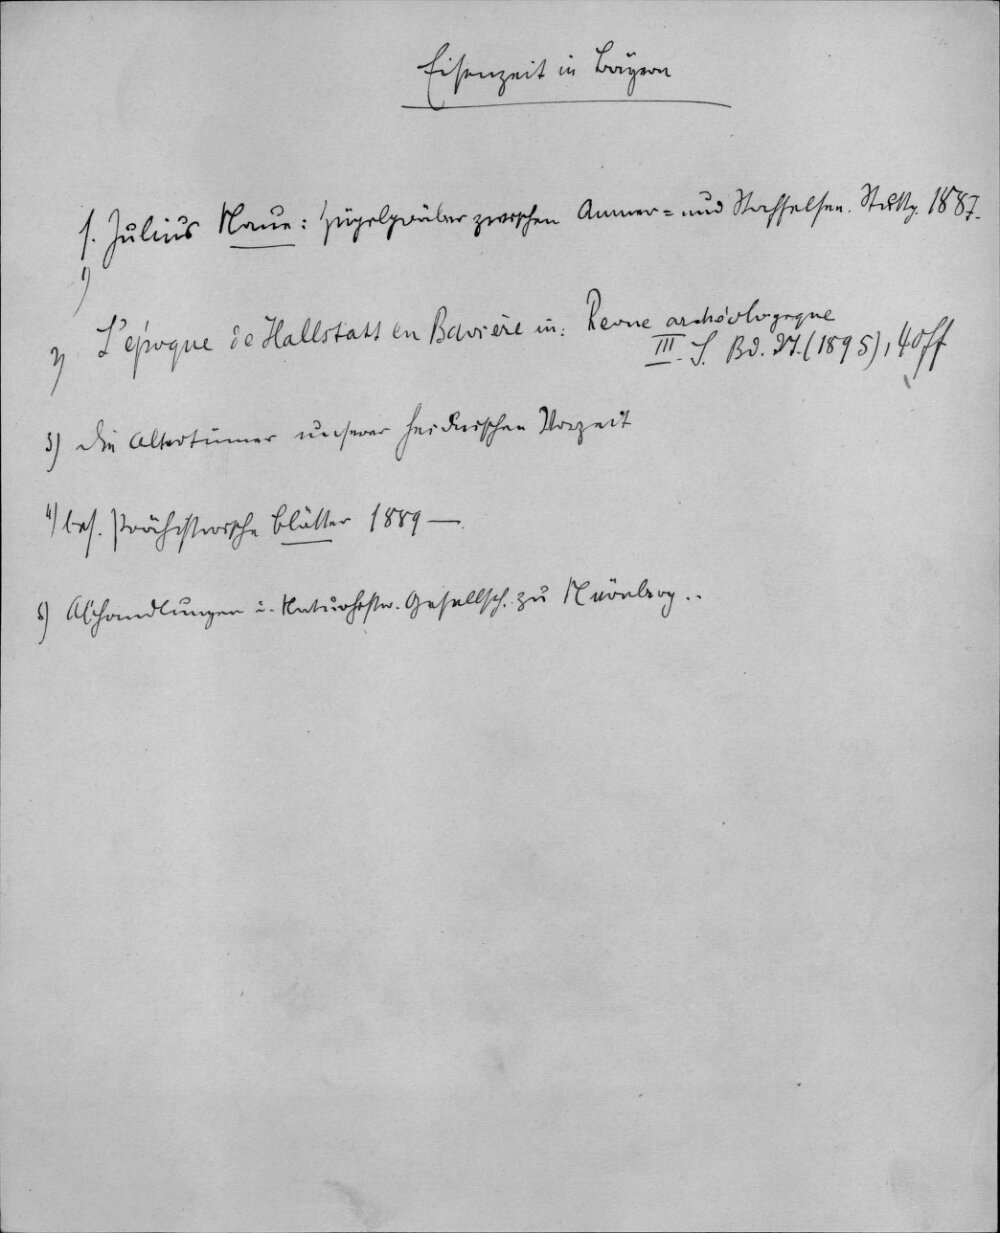 Eisenzeit in Bayern
1. Julius Naue: Hügelgräber zwischen Ammer= und Staffelsee. Stuttg. 1887.
1)
2) L'époque de Hallstatt en Bavière in: Revue archéologique
III. S. Bd. 27. (1895), 40ff
3) Die Altertümer unserer heidnischen Vorzeit
4) bes. Prähistorische Blätter 1889 —.
5) Abhandlungen d. Naturhistor. Gesellsch. zu Nürnberg..